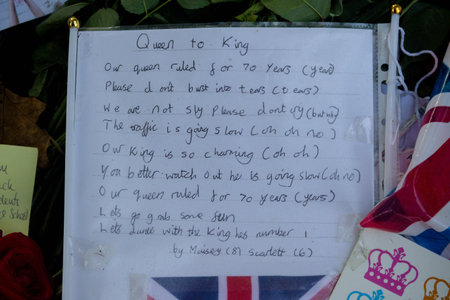 Queen to King
Our queen ruled for 70 years (year)
Please dont burst into tears (tears)
We are not sly please dont cry
The traffic is going slow (oh oh no)
Our King is so charming (oh oh)
You better watch out he is going slow (oh no)
Our queen ruled for 70 years (years)
Lets go grab some fun
Lets dance with the King hes number 1
by Maisey (8) Scarlett (6)